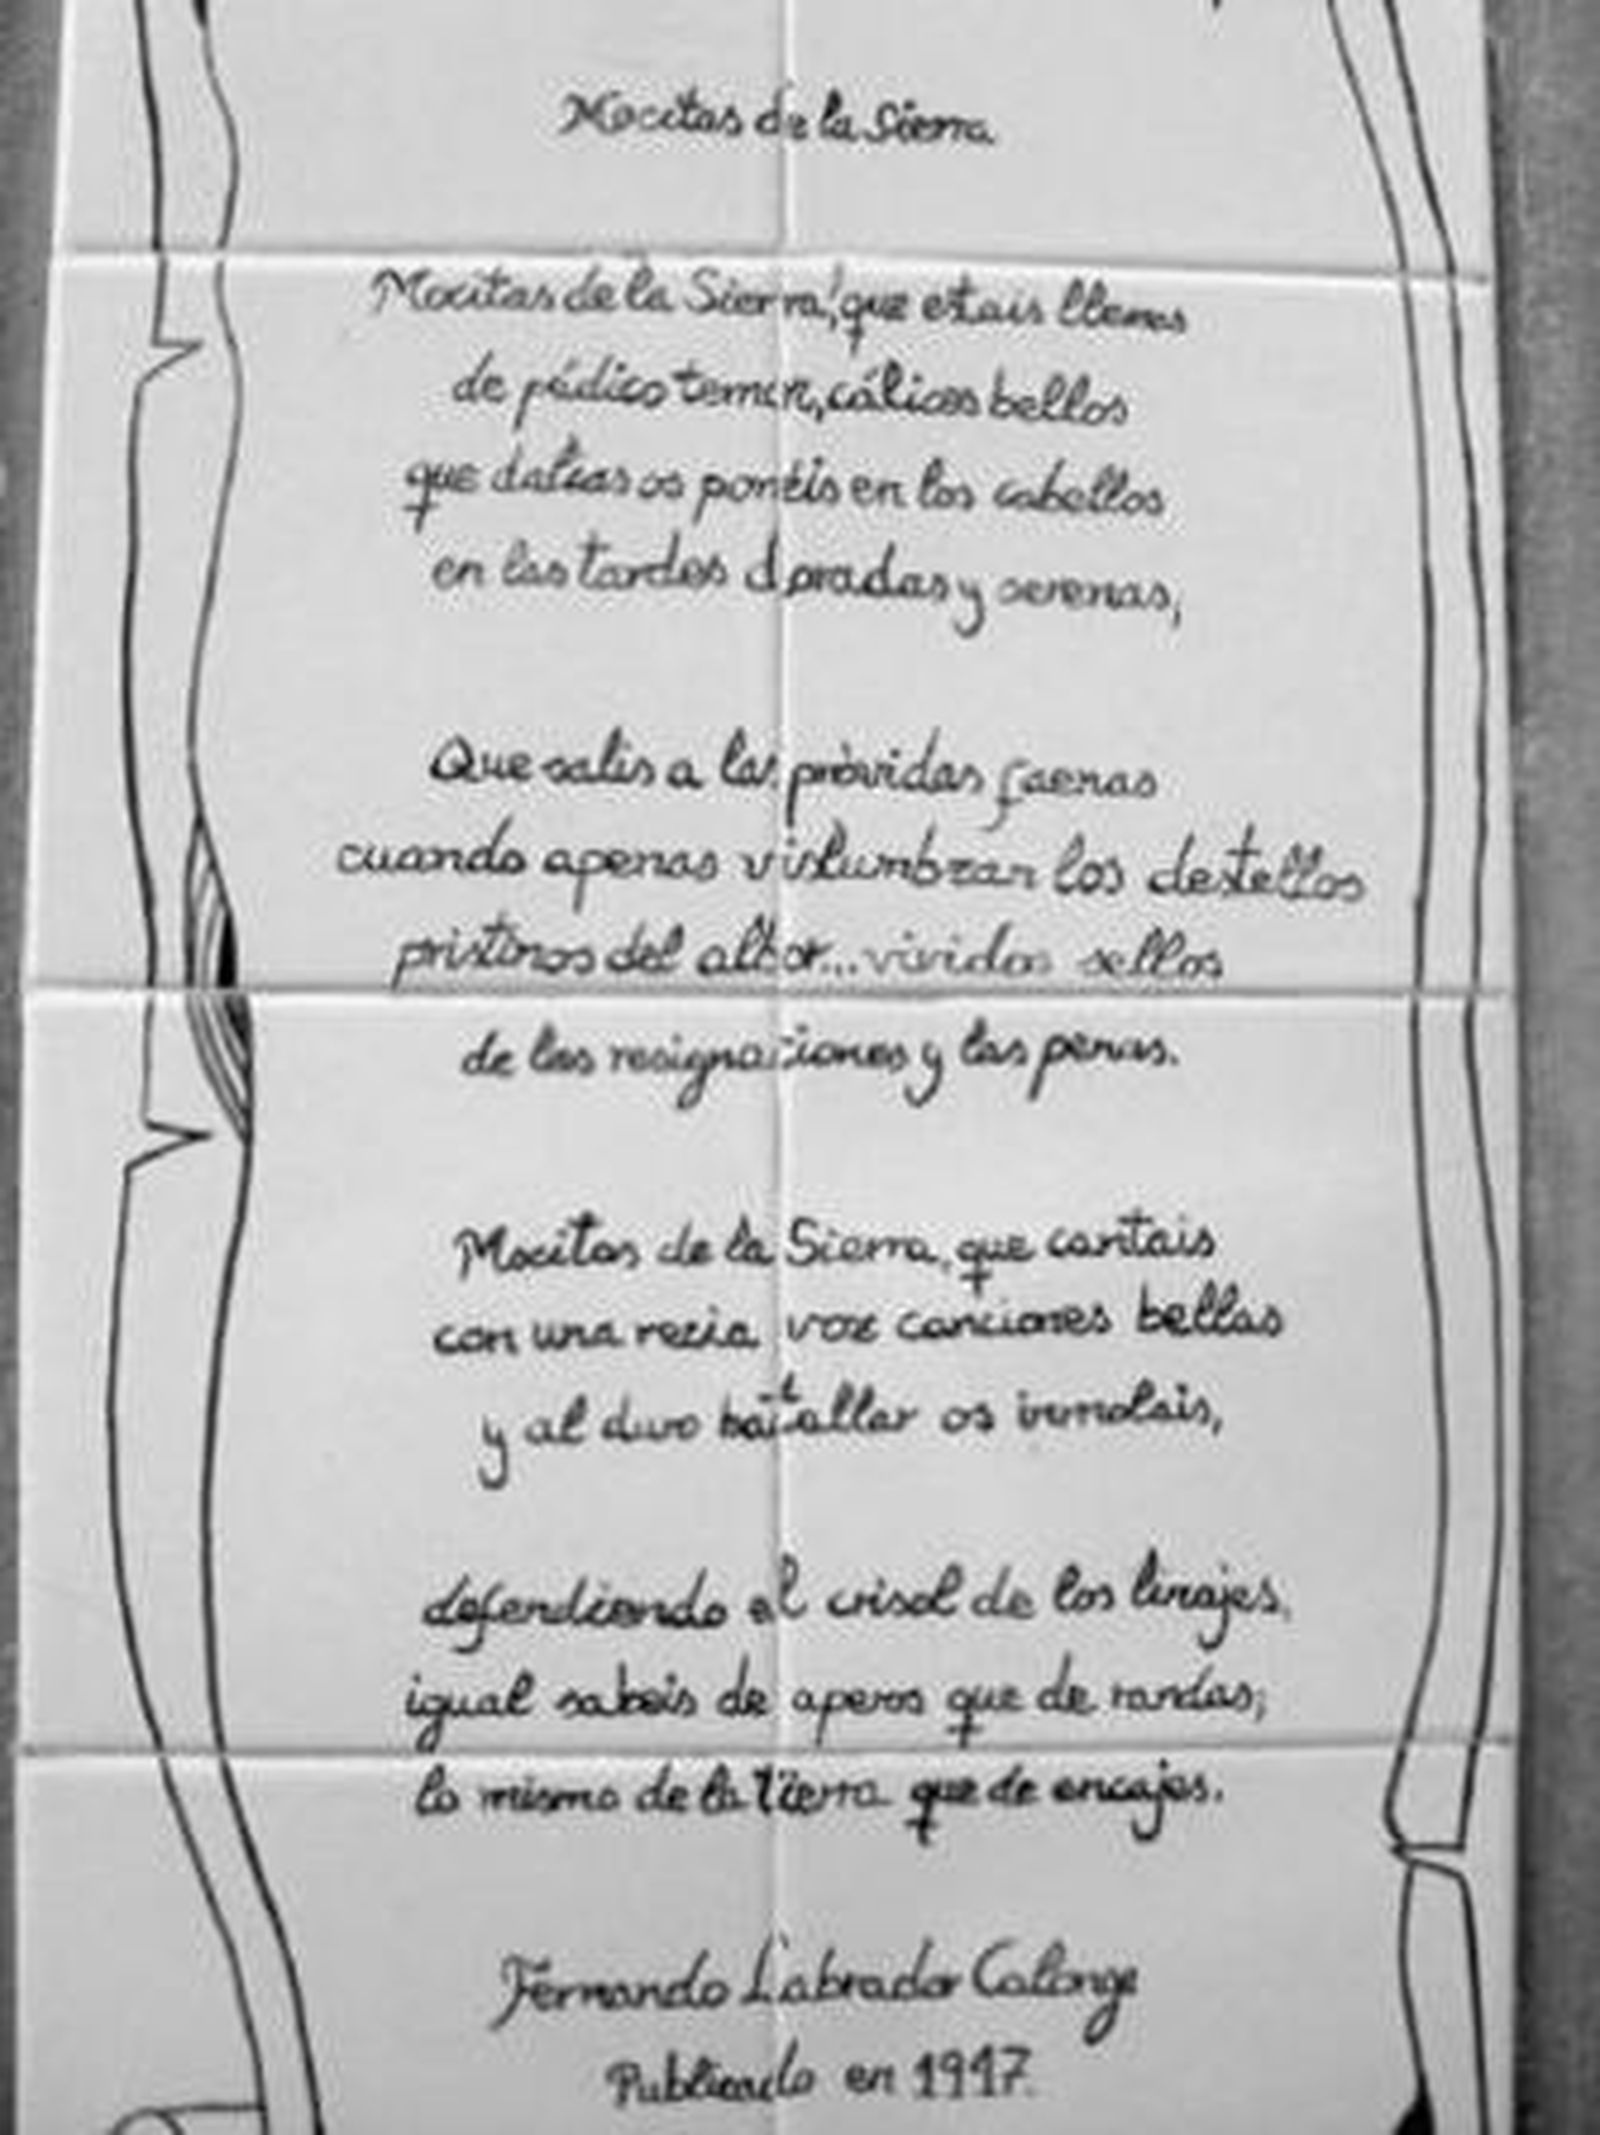 Mocitas de la Sierra
Mocitas de la Sierra, que estais llenas
de púdico temor, cálices bellos
que dalias os ponéis en los cabellos
en las tardes doradas y serenas;
Que salis a las próvidas faenas
cuando apenas vislumbran los destellos
pristinos del albor... vividos sellos
de las resignaciones y las penas.
Mocitas de la Sierra, que cantais
con una recia voz canciones bellas
y al duro batallar os inmolais,
defendiendo el crisol de los linajes,
igual sabeis de aperos que de randas;
lo mismo de la tierra que de encajes.
Fernando Labrador Calonge
Publicado en 1917